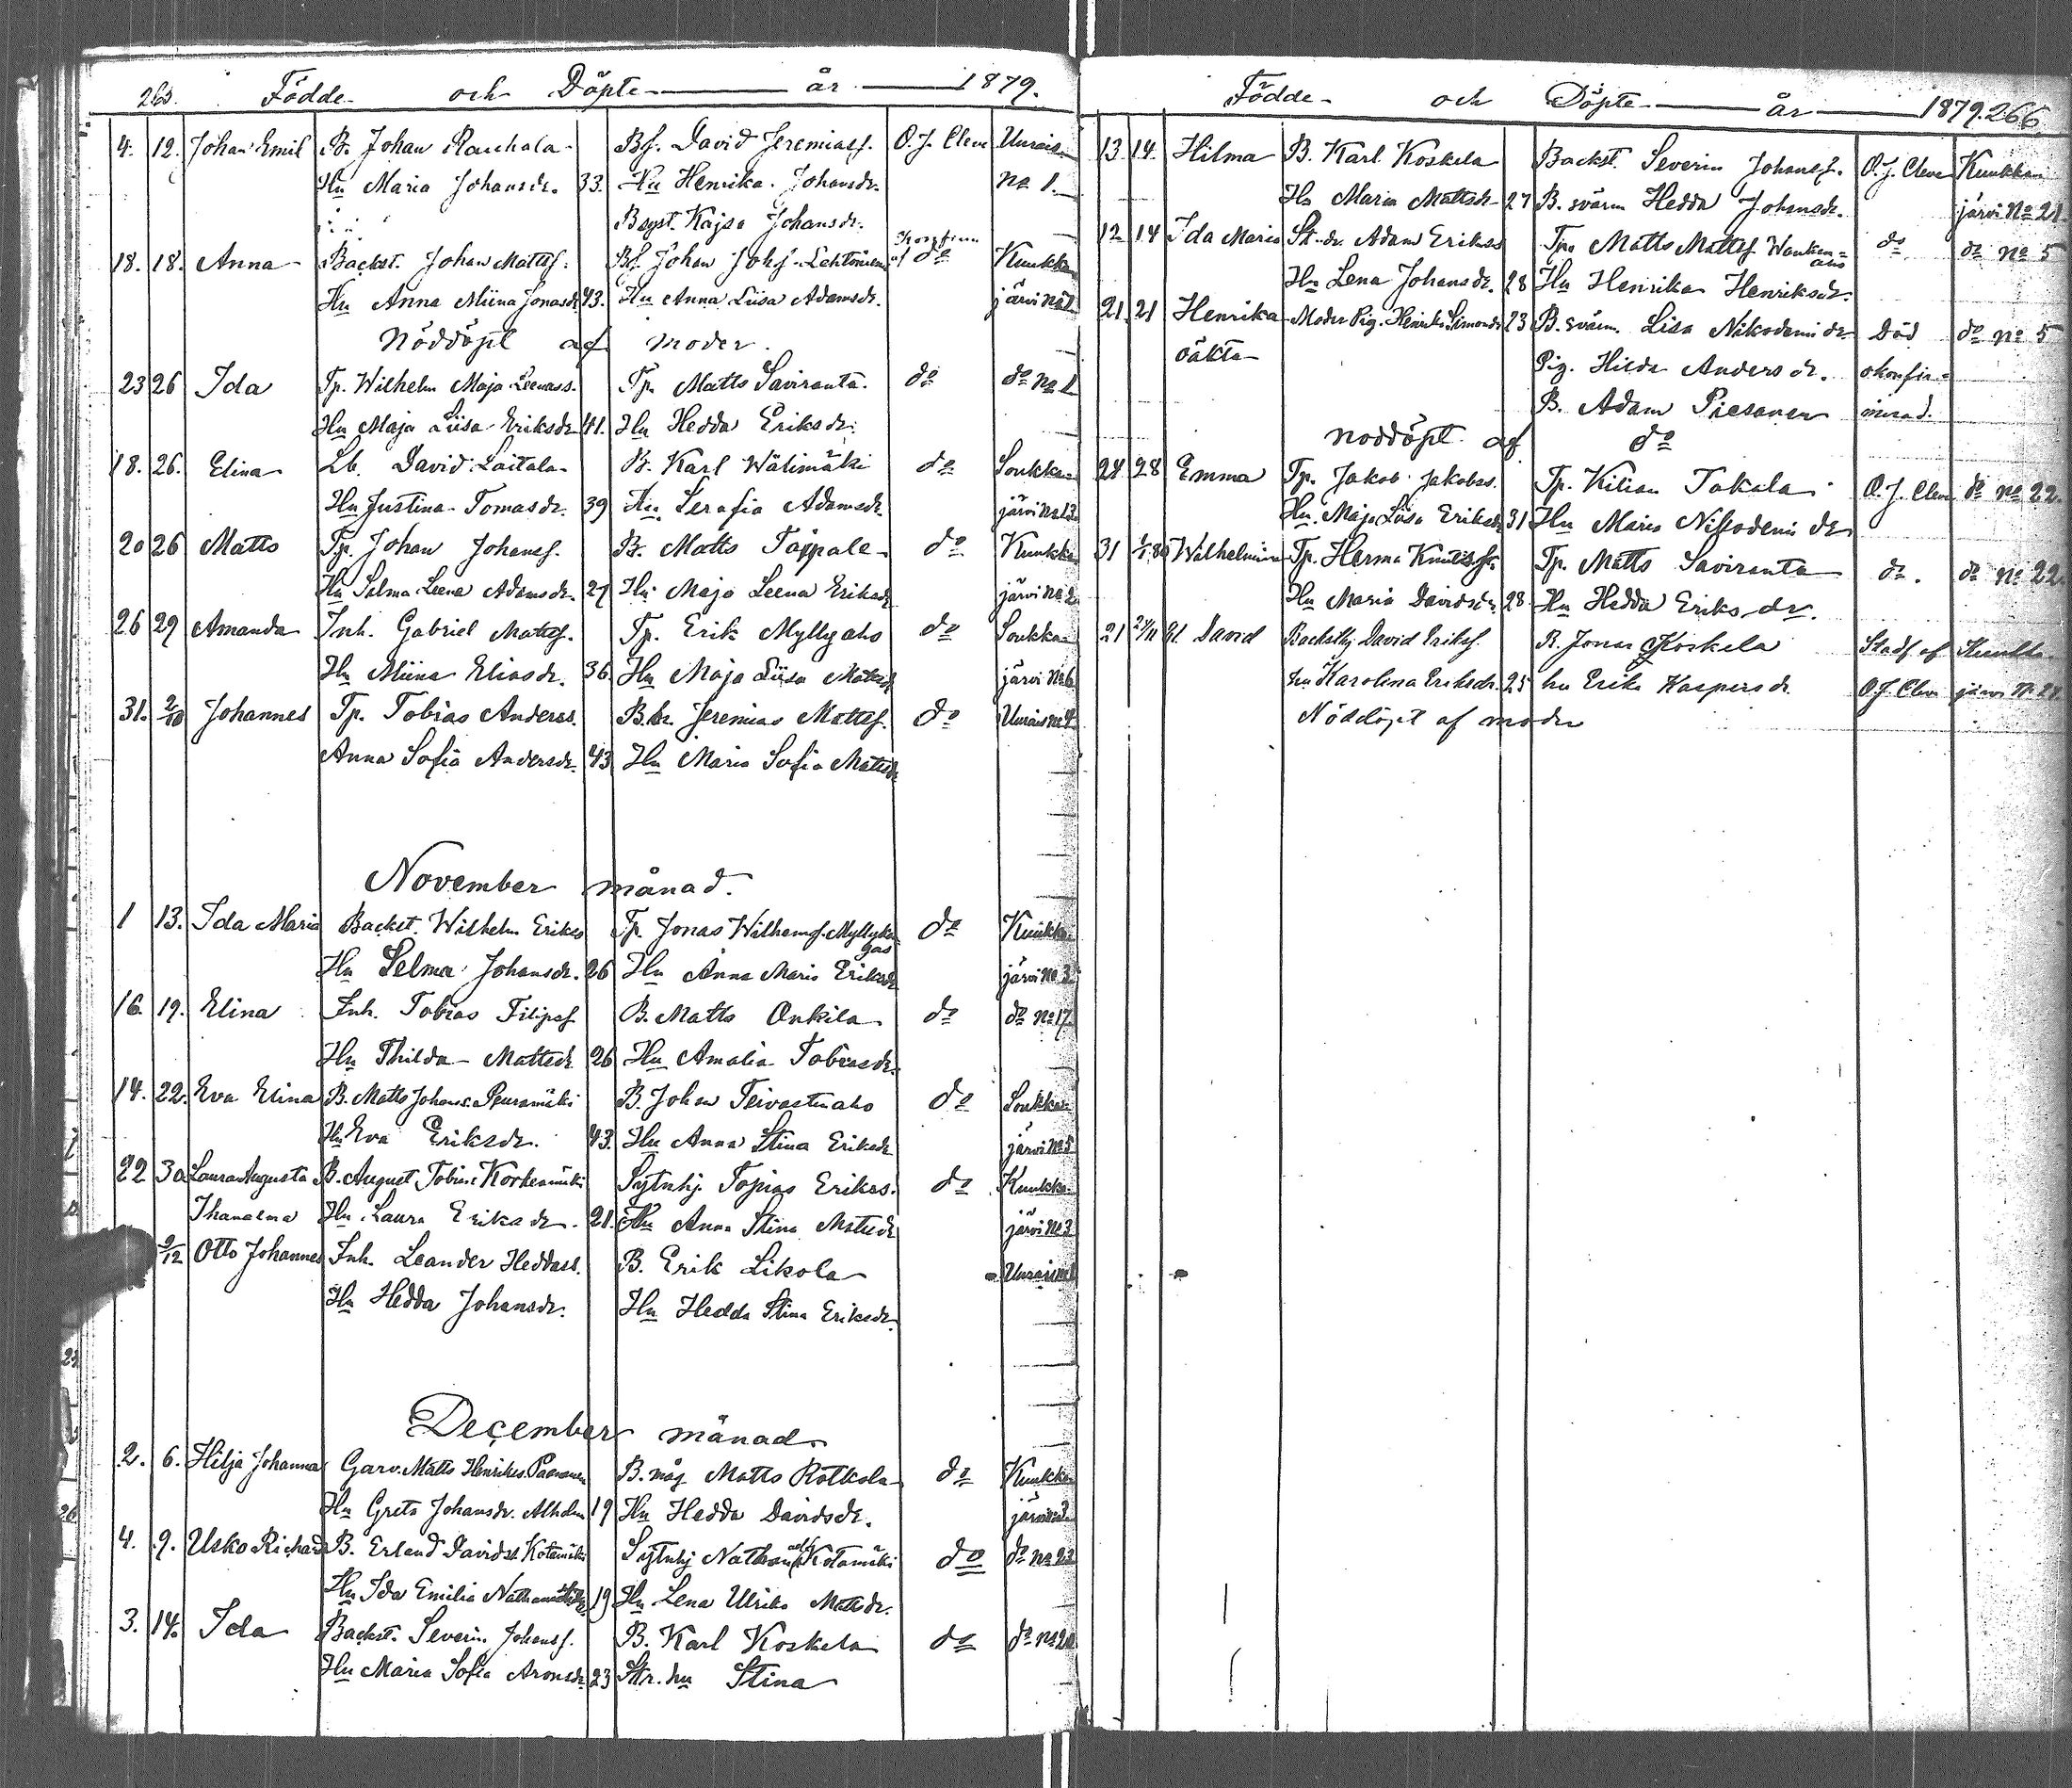 265. Födde och Döpte år 1879.
4. 12. Johan Emil B. Johan Rauhala Bf. David Jeremiass. O. J. Cleve Uurais
Hu Maria Johansdr. 33. Hu Henrika Johansdr. No 1.
B syst. Kajsa Johansdr.
18. 18. Anna Backst. Johan Mattsf. Bf. Johan Johsf. Lehtonen af do Kuukka
Hu Anna Miina Jonasdr 43. Hu Anna Liisa Adamsdr. järvi No 2
Nöddöpt af moder.
23 26 Ida Tp. Wilhelm Maja Leenass. Tp. Matts Saviranta. do do No 1
Hu Maja Liisa Eriksdr 41. Hu Hedda Eriksdr.
18. 26. Elina Lb. David Laitala B. Karl Wälimäki do Soukka
Hu Justina Tomasdr. 39 Hu Serafia Adamsdr. järvi No 13
20 26 Matts Tp. Johan Johansf. B. Matts Taipale do Kuukka
Hu Selma Leena Adamsdr. 27 Hu Maja Leena Eriksdr järvi No 2
26 29 Amanda Inh. Gabriel Mattsf. Tp. Erik Myllyaho do Soukka
Hu Miina Eliasdr. 36. Hu Maja Liisa Mattsdr järvi No 6
31. 2/10 Johannes Tp. Tobias Anderss. B. br. Jeremias Mattsf. do Uurais No 4
Anna Sofia Andersdr. 43 Hu Maria Sofia Mattsdr
November månad.
1 13. Ida Maria Backst. Wilhelm Erikss Tp. Jonas Wilhemsf. Myllykan do Kuukka
gas
Hu Selma Johansdr. 26 Hu Anna Maria Eriksdr järvi No 3
16. 19. Elina Inh. Tobias Filipsf B. Matts Onkila do do No 17.
Hu Thilda Mattsdr 26 Hu Amalia Tobiasdr.
14. 22. Eva Elina B. Matts Johanss. Peuramäki B. Johan Teivastenaho do Soukka
Hu Eva Eriksdr. 43. Hu Anna Stina Eriksdr järvi No 5
22 30 Laura Augusta B. August Tobias Korkeamäki Sytnhj. Topias Erikss. do Kuukka
Hu Laura Eriksdr. 21. Hu Anna Stina Mattsdr järvi No 3
9/12 Otto Johannes Inh. Leander Heddass. B. Erik Likola Uurais
Hu Hedda Johansdr. Hu Hedda Stina Eriksdr.
December månad
2. 6. Hilja Johanna Garv. Matts Henrikss. Paananen B. måg Matts Rotkola do Kuukka
Hu Greta Johansdr. Alholm 19 Hu Hedda Davidsdr. järvi
4. 9. Usko Richard B. Erland Davidss. Kotamäki Sytnhj Nathanael Kotamäki do do No 23
Hu Ida Emilia 19 Hu Lena Ulrika Mattsdr.
3. 14. Ida Backst. Severin Johansf. B. Karl Koskela do do No 20
Hu Maria Sofia Aronsdr 23 Str. hu Stina
Födde och Döpte år 1879. 266
13 14. Hilma B. Karl Koskela Backst. Severin Johansf. O. J. Cleve Kuukka
Hu Maria Mattsdr 27 B. svärm Hedda Johansdr. järvi No 21
12 14 Ida Maria St. dr. Adam Erikss Tp. Matts Mattsf Wankan= do do No 5
aho
Hu Lena Johansdr. 28 Hu Henrika Henriksdr.
21. 21 Henrika Moder Pig. Henrika Simonsdr 23 B. svärm. Lisa Nikodemidr Död do No 5
oäkta Pig. Hilda Andersdr. okonfir=
B. Adam Piesanen merad.
nöddöpt af do
24 28 Emma Tp. Jakob Jakobss. Tp. Kilian Takala O. J. Cleve do No 22.
Hu Maja Liisa Eriksdr 31 Hu Maria Nikodemi dr
31 1/1 80 Wilhelmina Tp. Herman Tp. Matts Saviranta do. do No 22
Hu Maria Davidsdr. 28 Hu Hedda Eriksdr.
21 21/11 David Backsthj David Eriksf. B. Jonas Koskela Stadf af Kuukka
hu Karolina Eriksdr. 25 hu Erika Kaspersdr. O. J. Cleve järvi
Nöddöpt af moder